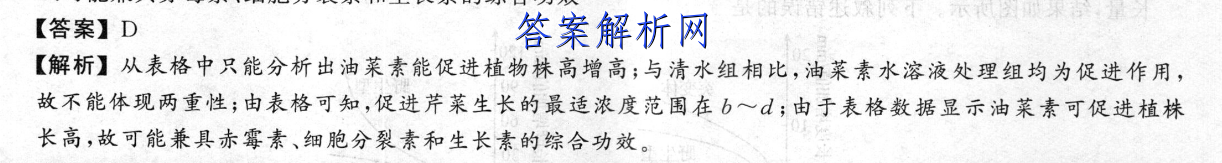 【答案】D
答案解析网
【解析】从表格中只能分析出油菜素能促进植物株高增高;与清水组相比,油菜素水溶液处理组均为促进作用,
故不能体现两重性;由表格可知,促进芹菜生长的最适浓度范围在b～d;由于表格数据显示油菜素可促进植株
长高,故可能兼具赤霉素、细胞分裂素和生长素的综合功效。